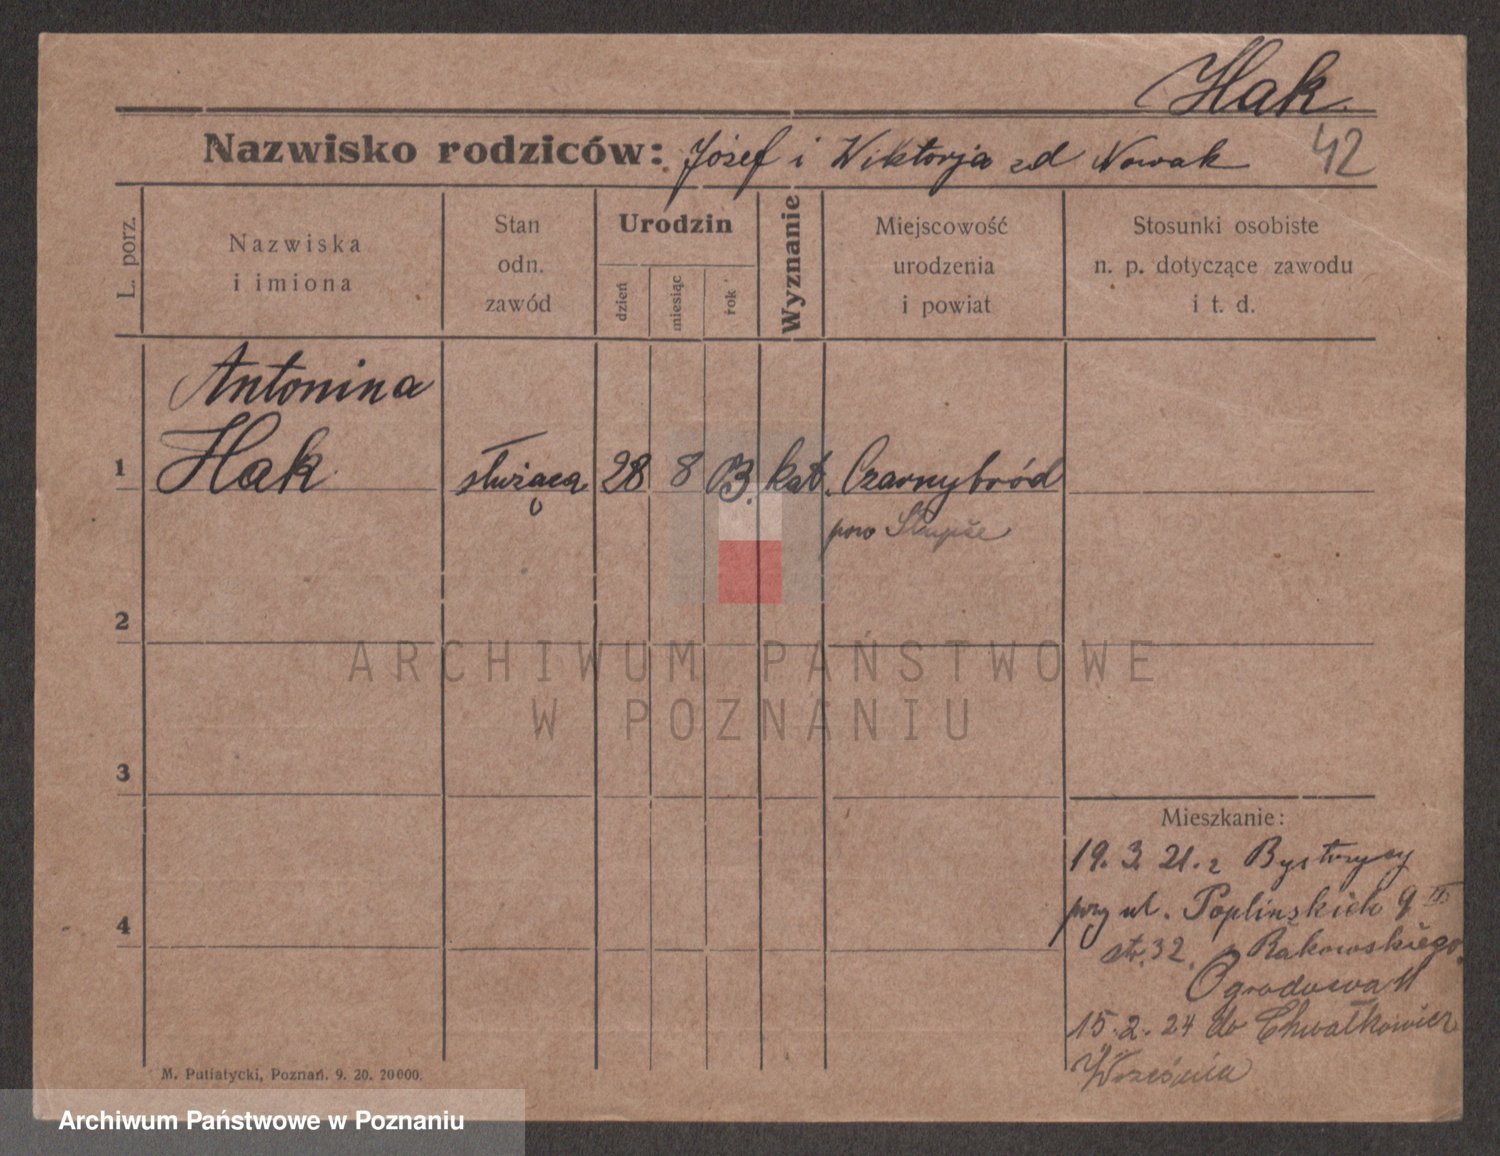 Hak.
Nazwisko rodziców: Józef i Wiktorja zd Nowak 42
L. porz.
Nazwiska
i imiona
Stan
odn.
zawód
Urodzin
dzień
miesiąc
rok
Wyznanie
Miejscowość
urodzenia
i powiat
Stosunki osobiste
n. p. dotyczące zawodu
i t. d.
Antonina
1 Hak służąca 28 8 03. kat. Czarnybród
pow Słupce
2
ARCHIWUM PAŃSTWOWE
W POZNANIU
3
Mieszkanie:
19. 3. 21. z Bystrzycy
przy ul. Poplińskich 9 II
str. 32. Rakowskiego
4
Ogrodowa 11
15. 2. 24 do Chwałkowic
Września
M. Putiatycki, Poznań. 9. 20. 20000.
Archiwum Państwowe w Poznaniu